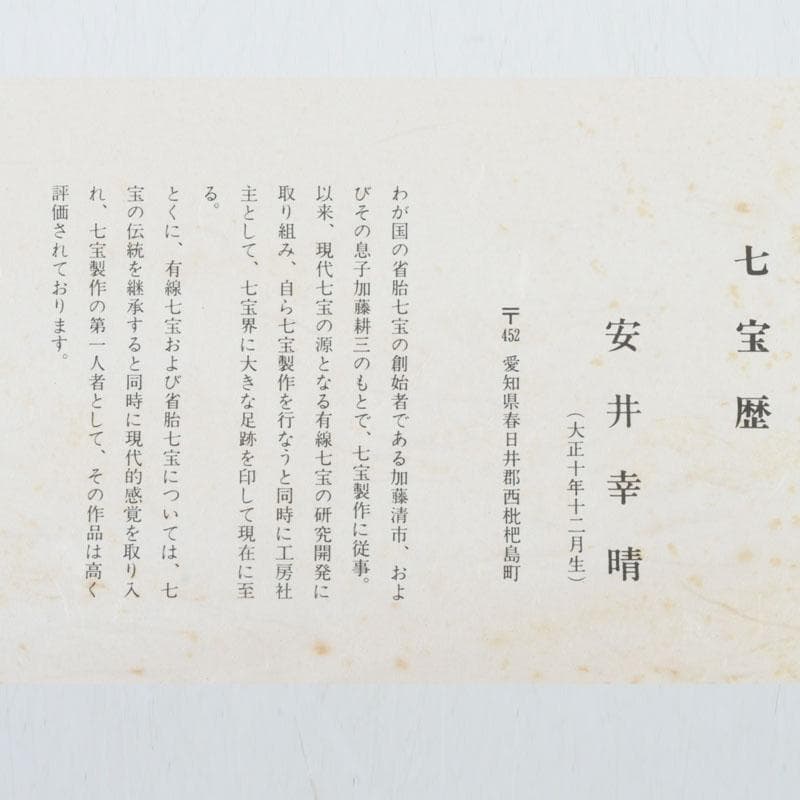 七宝歴
安井幸晴
（大正十年十二月生）
〒452 愛知県春日井郡西枇杷島町
わが国の省胎七宝の創始者である加藤清市、およ
びその息子加藤耕三のもとで、七宝製作に従事。
以来、現代七宝の源となる有線七宝の研究開発に
取り組み、自ら七宝製作を行なうと同時に工房社
主として、七宝界に大きな足跡を印して現在に至
る。
とくに、有線七宝および省胎七宝については、七
宝の伝統を継承すると同時に現代的感覚を取り入
れ、七宝製作の第一人者として、その作品は高く
評価されております。